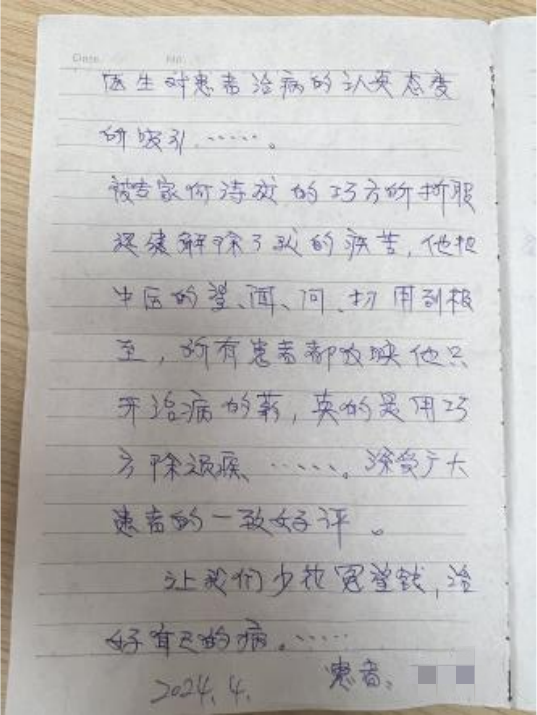 Date. No.
医生对患者治病的认真态度
所吸引……。
被专家何涛波的巧方所折服
迅速解除了我的疾苦,他把
中医的望、闻、问、切用到极
至,所有患者都放映他只
开治病的药,真的是用巧
方除顽疾……。深受广大
患者的一致好评。
让我们少花冤望钱,治
好自己的病。……
2024.4. 患者: